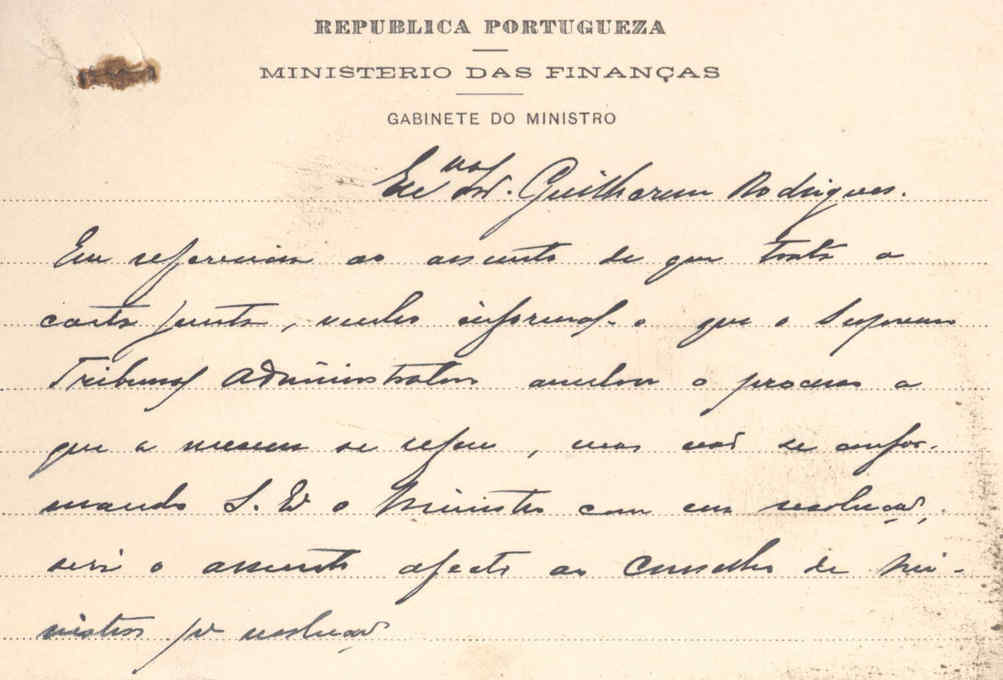 REPUBLICA PORTUGUEZA
MINISTERIO DAS FINANÇAS
GABINETE DO MINISTRO
Exmo Snr. Guilherme Rodrigues.
Em referencia ao assunto de que trata a
carta junta, venho informal-o que o Supremo
Tribunal Administrativo anulou o processo a
que a mesma se refere, mas não se confor-
mando S. Exª o Ministro com essa resolução,
será o assunto afecto ao Conselho de Mi-
nistros pª resolução